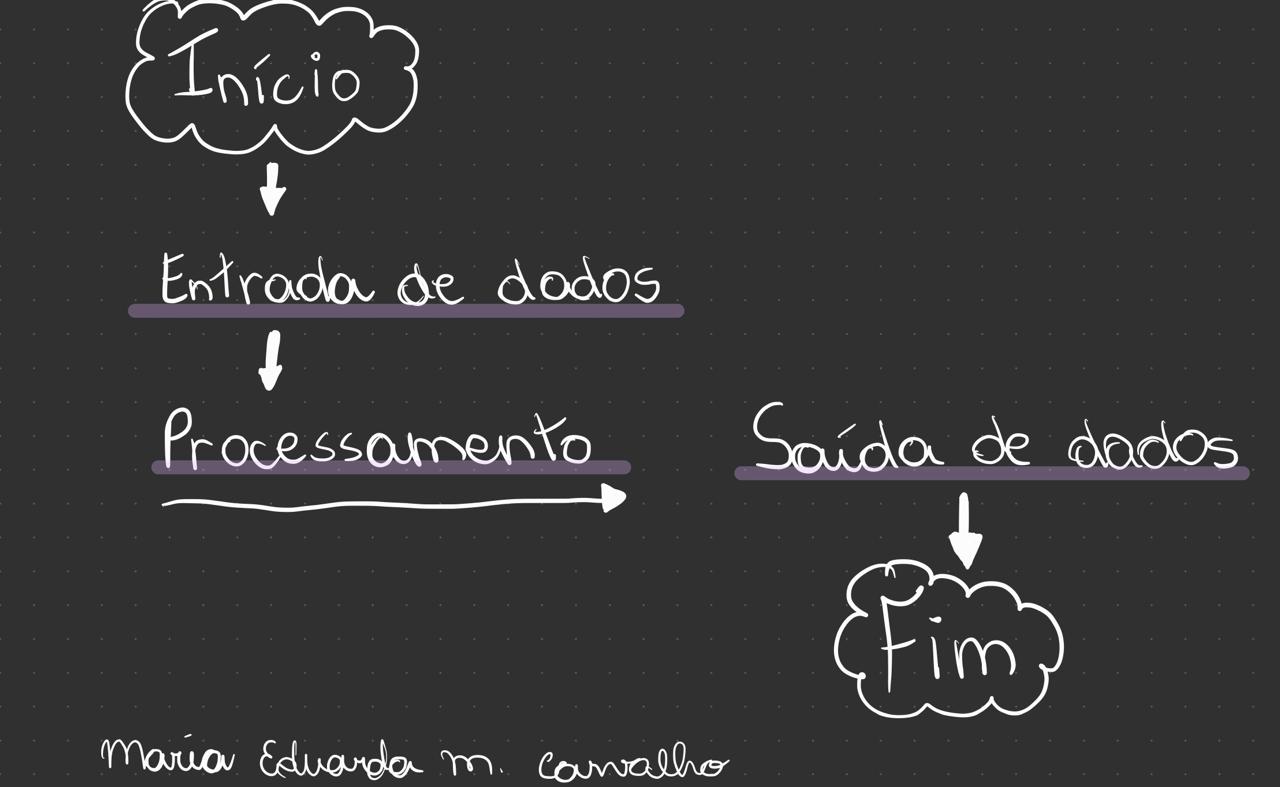 Início
Entrada de dados
Processamento
Saída de dados
Fim
Maria Eduarda m. Carvalho